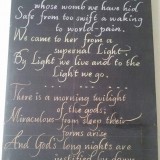 whose womb we have hid
Safe from too swift a waking
to world-pain.
We came to her from a
supernal Light,
By Light we live and to the
Light we go.
There is a morning twilight
of the gods;
Miraculous from sleep their
forms arise
And God's long nights are
justified by dawn